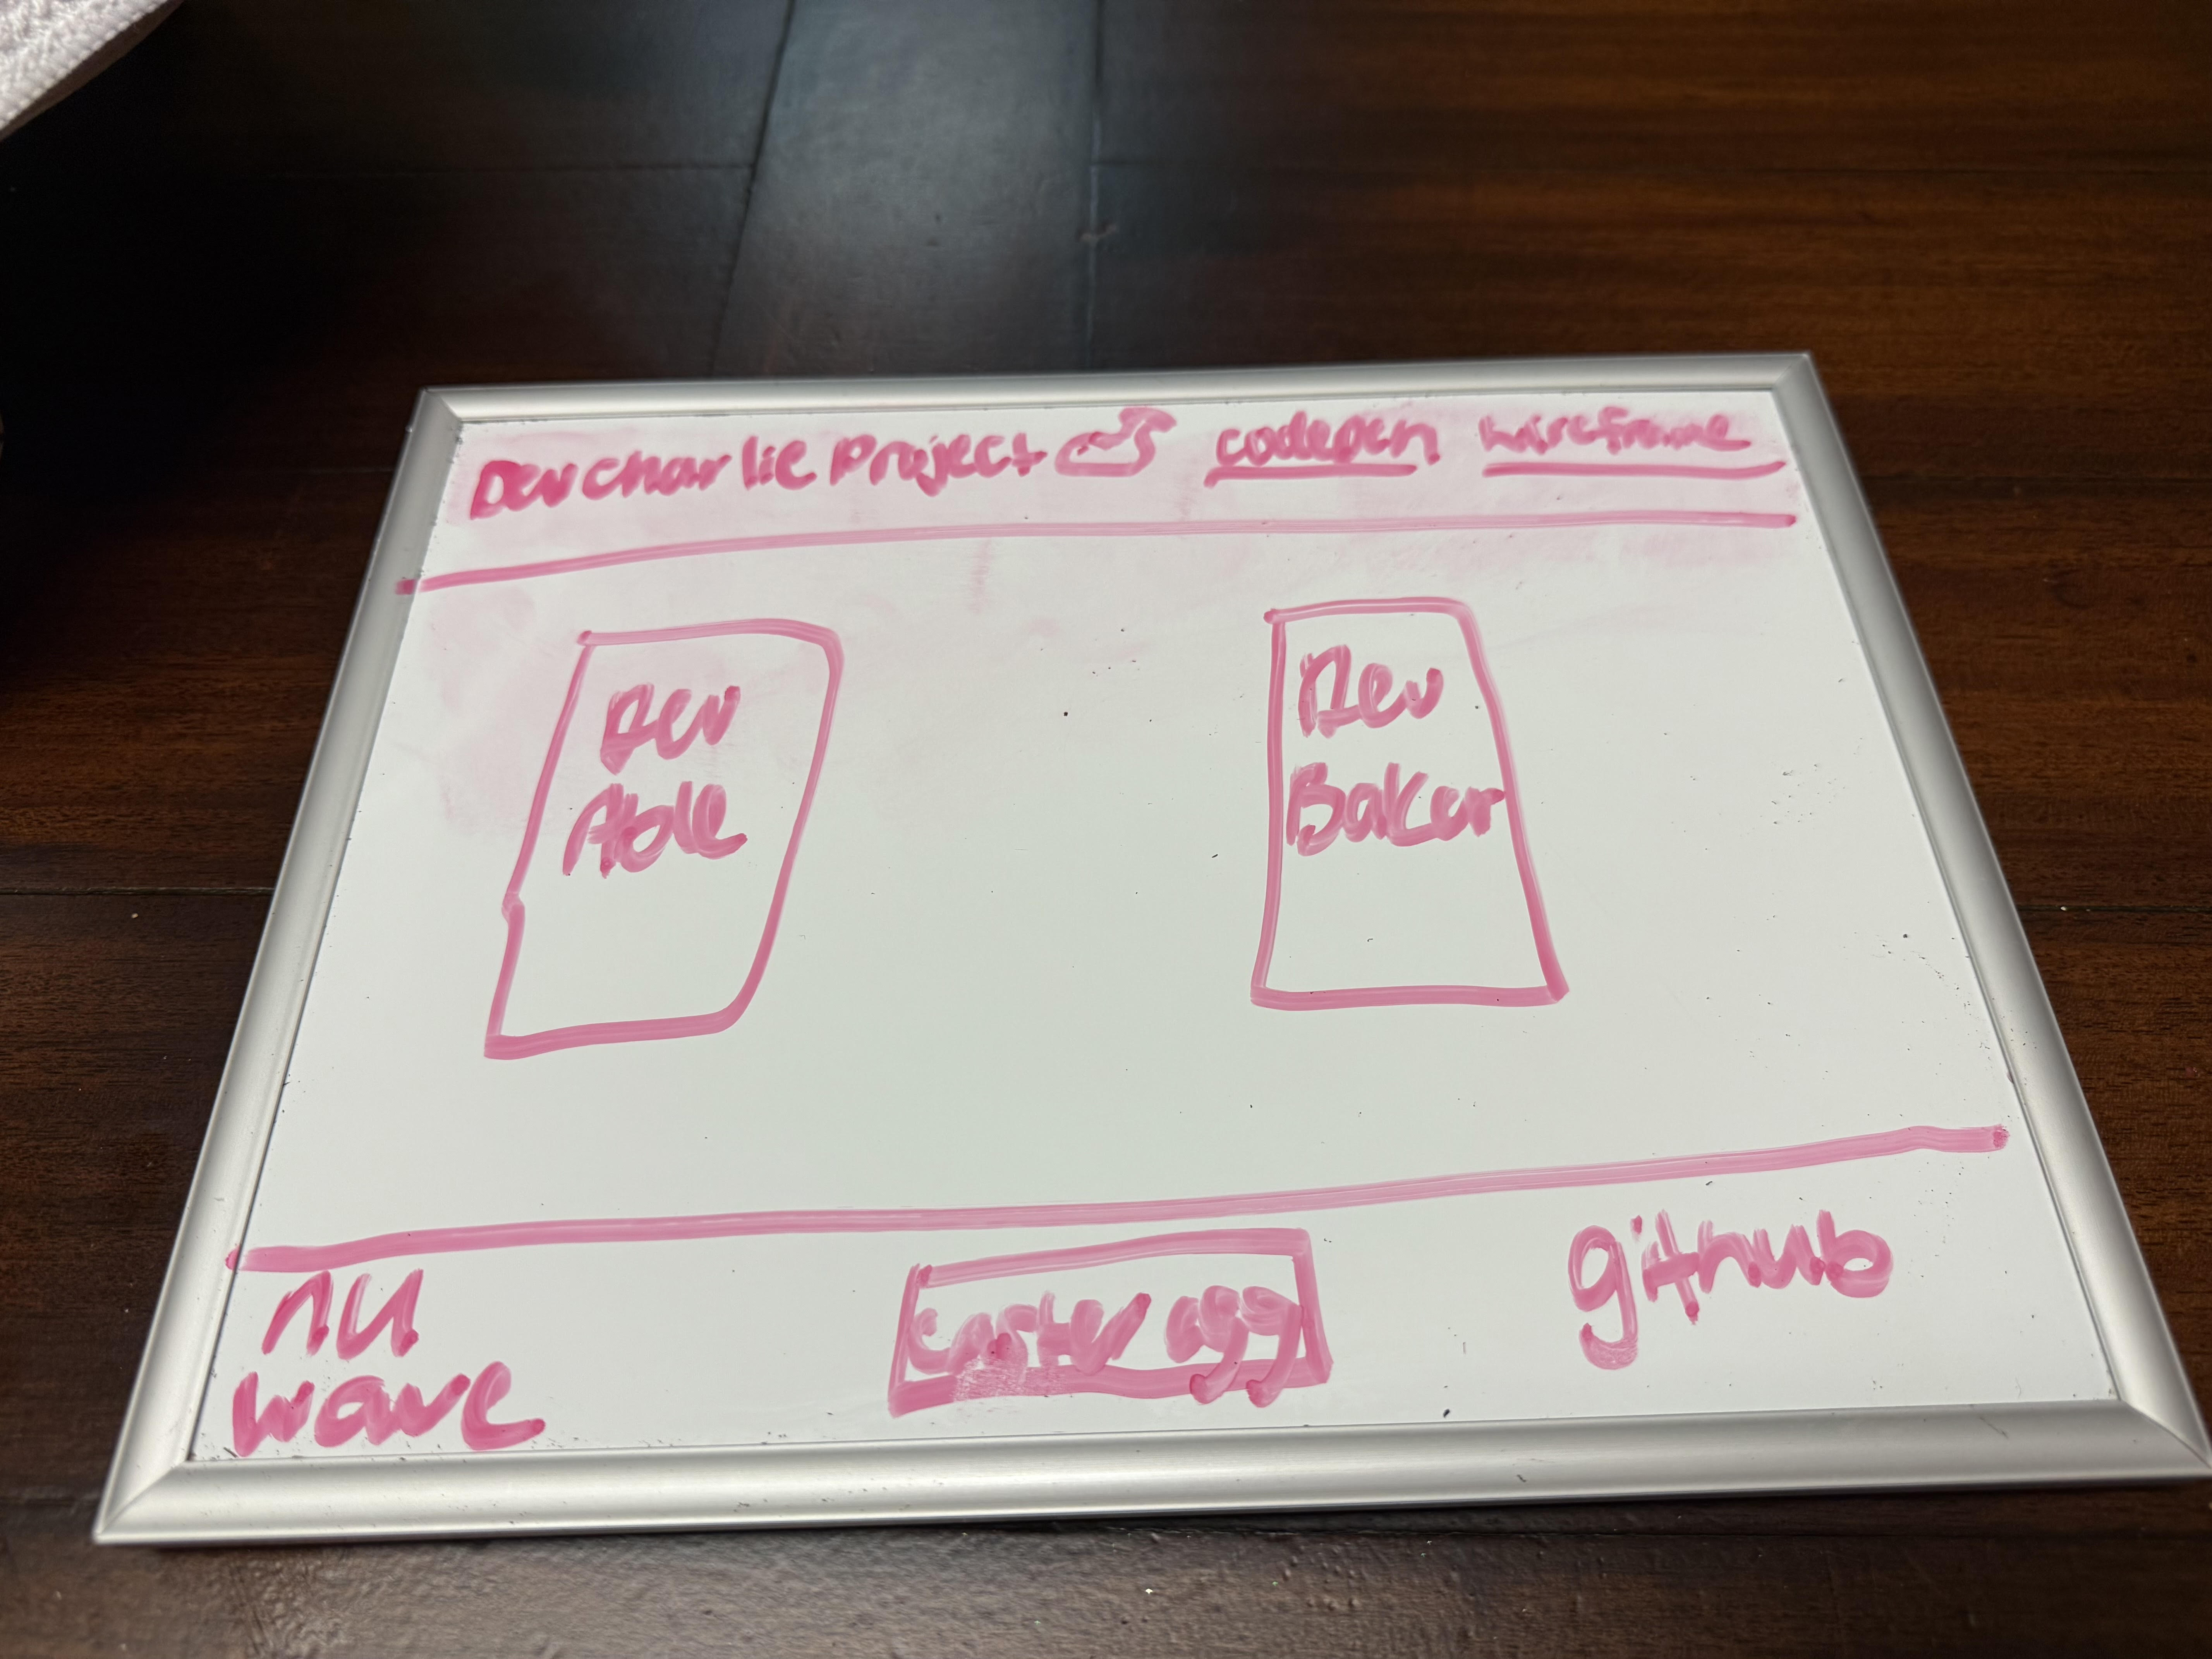 Dev Charlie Project codepen wireframe
Dev
Able
Dev
Baker
nu
wave
easter egg
github